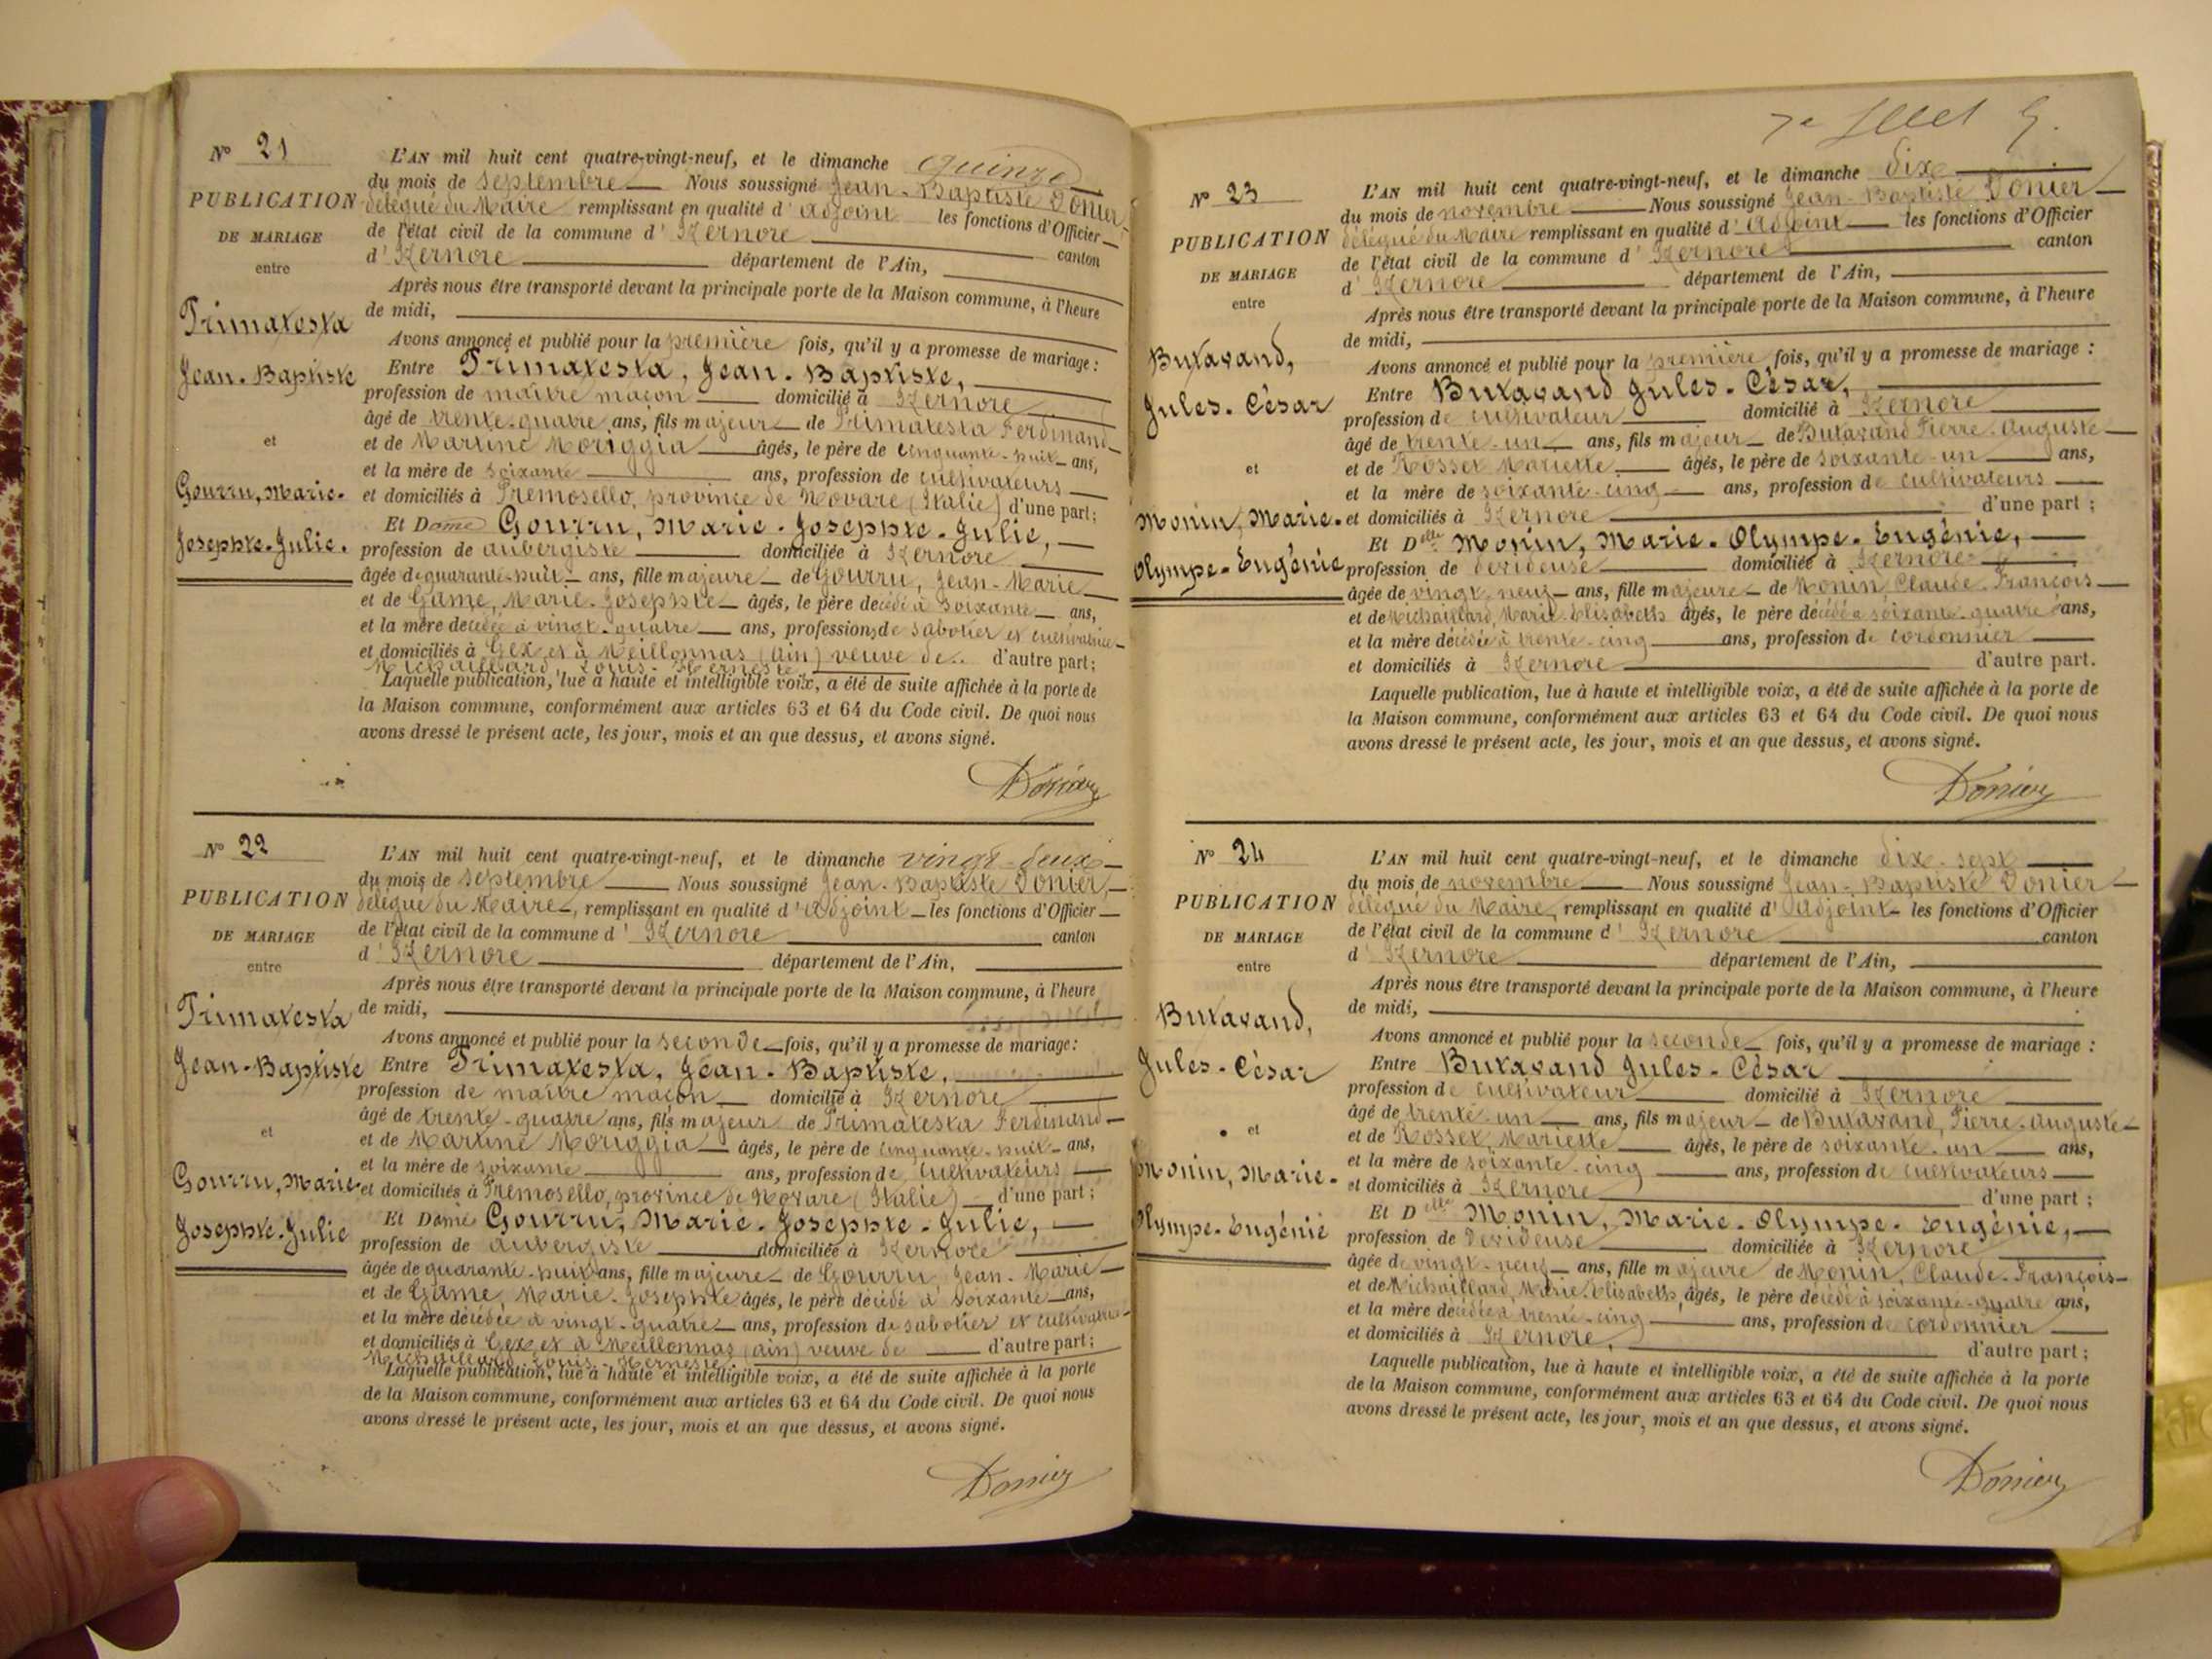 Nº 21
PUBLICATION
DE MARIAGE
entre
Trimatesta
Jean-Baptiste
et
Gourru, Marie-
Josephte-Julie.
L'AN mil huit cent quatre-vingt-neuf, et le dimanche quinze
du mois de septembre Nous soussigné Jean-Baptiste Donier
délégué du Maire remplissant en qualité d'adjoint les fonctions d'Officier
de l'état civil de la commune d'Izernore
d'Izernore département de l'Ain, canton
Après nous être transporté devant la principale porte de la Maison commune, à l'heure
de midi,
Avons annoncé et publié pour la première fois, qu'il y a promesse de mariage :
Entre Trimatesta, Jean-Baptiste,
profession de maître maçon domicilié à Izernore
âgé de trente-quatre ans, fils majeur de Trimatesta Ferdinand
et de Martine Moriggia âgés, le père de cinquante-huit ans,
et la mère de soixante ans, profession de cultivateurs
et domiciliés à Premosello, province de Novare (Italie) d'une part;
Et Dame Gourru, Marie-Josephte-Julie,
profession de aubergiste domiciliée à Izernore
âgée de quarante-huit ans, fille majeure de Gourru, Jean-Marie
et de Game, Marie-Josephte âgés, le père décédé à soixante ans,
et la mère décédée à vingt-quatre ans, professions de sabotier et cultivatrice
et domiciliés à Gex et à Meillonnas (Ain) veuve de.. d'autre part;
Michaillard, Louis-Herneste.
Laquelle publication, lue à haute et intelligible voix, a été de suite affichée à la porte de
la Maison commune, conformément aux articles 63 et 64 du Code civil. De quoi nous
avons dressé le présent acte, les jour, mois et an que dessus, et avons signé.
Donier
Nº 22
PUBLICATION
DE MARIAGE
entre
Trimatesta
Jean-Baptiste
et
Gourru, Marie
Josephte-Julie
L'AN mil huit cent quatre-vingt-neuf, et le dimanche vingt-deux
du mois de septembre Nous soussigné Jean-Baptiste Donier,
délégué du Maire, remplissant en qualité d'adjoint les fonctions d'Officier
de l'état civil de la commune d'Izernore canton
d'Izernore département de l'Ain,
Après nous être transporté devant la principale porte de la Maison commune, à l'heure
de midi,
Avons annoncé et publié pour la seconde fois, qu'il y a promesse de mariage :
Entre Trimatesta, Jean-Baptiste,
profession de maître maçon domicilié à Izernore
âgé de trente-quatre ans, fils majeur de Trimatesta Ferdinand
et de Martine Moriggia âgés, le père de cinquante-huit ans,
et la mère de soixante ans, profession de cultivateurs
et domiciliés à Premosello, province de Novare (Italie) d'une part;
Et Dame Gourru, Marie-Josephte-Julie,
profession de aubergiste domiciliée à Izernore
âgée de quarante-huit ans, fille majeure de Gourru Jean-Marie
et de Game, Marie-Josephte âgés, le père décédé à soixante ans,
et la mère décédée à vingt-quatre ans, profession de sabotier et cultivatrice
et domiciliés à Gex et à Meillonnas (Ain) veuve de d'autre part;
Michaillard Louis-Herneste.
Laquelle publication, lue à haute et intelligible voix, a été de suite affichée à la porte
de la Maison commune, conformément aux articles 63 et 64 du Code civil. De quoi nous
avons dressé le présent acte, les jour, mois et an que dessus, et avons signé.
Donier
Nº 23
PUBLICATION
DE MARIAGE
entre
Butavand,
Jules-César
et
Monin, Marie-
Olympe-Eugénie
L'AN mil huit cent quatre-vingt-neuf, et le dimanche dix
du mois de novembre Nous soussigné Jean-Baptiste Donier
délégué du Maire remplissant en qualité d'adjoint les fonctions d'Officier
de l'état civil de la commune d'Izernore canton
d'Izernore département de l'Ain,
Après nous être transporté devant la principale porte de la Maison commune, à l'heure
de midi,
Avons annoncé et publié pour la première fois, qu'il y a promesse de mariage :
Entre Butavand Jules-César,
profession de cultivateur domicilié à Izernore
âgé de trente-un ans, fils majeur de Butavand Pierre-Auguste
et de Rosset Mariette âgés, le père de soixante-un ans,
et la mère de soixante-cinq ans, profession de cultivateurs
et domiciliés à Izernore d'une part;
Et Delle Monin, Marie-Olympe-Eugénie,
profession de devideuse domiciliée à Izernore
âgée de vingt-neuf ans, fille majeure de Monin Claude-François
et de Michaillard, Marie-Elisabeth âgés, le père décédé à soixante-quatre ans,
et la mère décédée à trente-cinq ans, profession de cordonnier
et domiciliés à Izernore d'autre part.
Laquelle publication, lue à haute et intelligible voix, a été de suite affichée à la porte de
la Maison commune, conformément aux articles 63 et 64 du Code civil. De quoi nous
avons dressé le présent acte, les jour, mois et an que dessus, et avons signé.
Donier
Nº 24
PUBLICATION
DE MARIAGE
entre
Butavand,
Jules-César
et
Monin, Marie-
Olympe-Eugénie
L'AN mil huit cent quatre-vingt-neuf, et le dimanche dix-sept
du mois de novembre Nous soussigné Jean-Baptiste Donier
délégué du Maire, remplissant en qualité d'adjoint les fonctions d'Officier
de l'état civil de la commune d'Izernore canton
d'Izernore département de l'Ain,
Après nous être transporté devant la principale porte de la Maison commune, à l'heure
de midi,
Avons annoncé et publié pour la seconde fois, qu'il y a promesse de mariage :
Entre Butavand Jules-César
profession de cultivateur domicilié à Izernore
âgé de trente-un ans, fils majeur de Butavand, Pierre-Auguste
et de Rosset, Mariette âgés, le père de soixante-un ans,
et la mère de soixante-cinq ans, profession de cultivateurs
et domiciliés à Izernore d'une part;
Et Delle Monin, Marie-Olympe-Eugénie,
profession de devideuse domiciliée à Izernore
âgée de vingt-neuf ans, fille majeure de Monin, Claude-François
et de Michaillard, Marie-Elisabeth, âgés, le père décédé à soixante-quatre ans,
et la mère décédée à trente-cinq ans, profession de cordonnier
et domiciliés à Izernore, d'autre part;
Laquelle publication, lue à haute et intelligible voix, a été de suite affichée à la porte
de la Maison commune, conformément aux articles 63 et 64 du Code civil. De quoi nous
avons dressé le présent acte, les jour, mois et an que dessus, et avons signé.
Donier